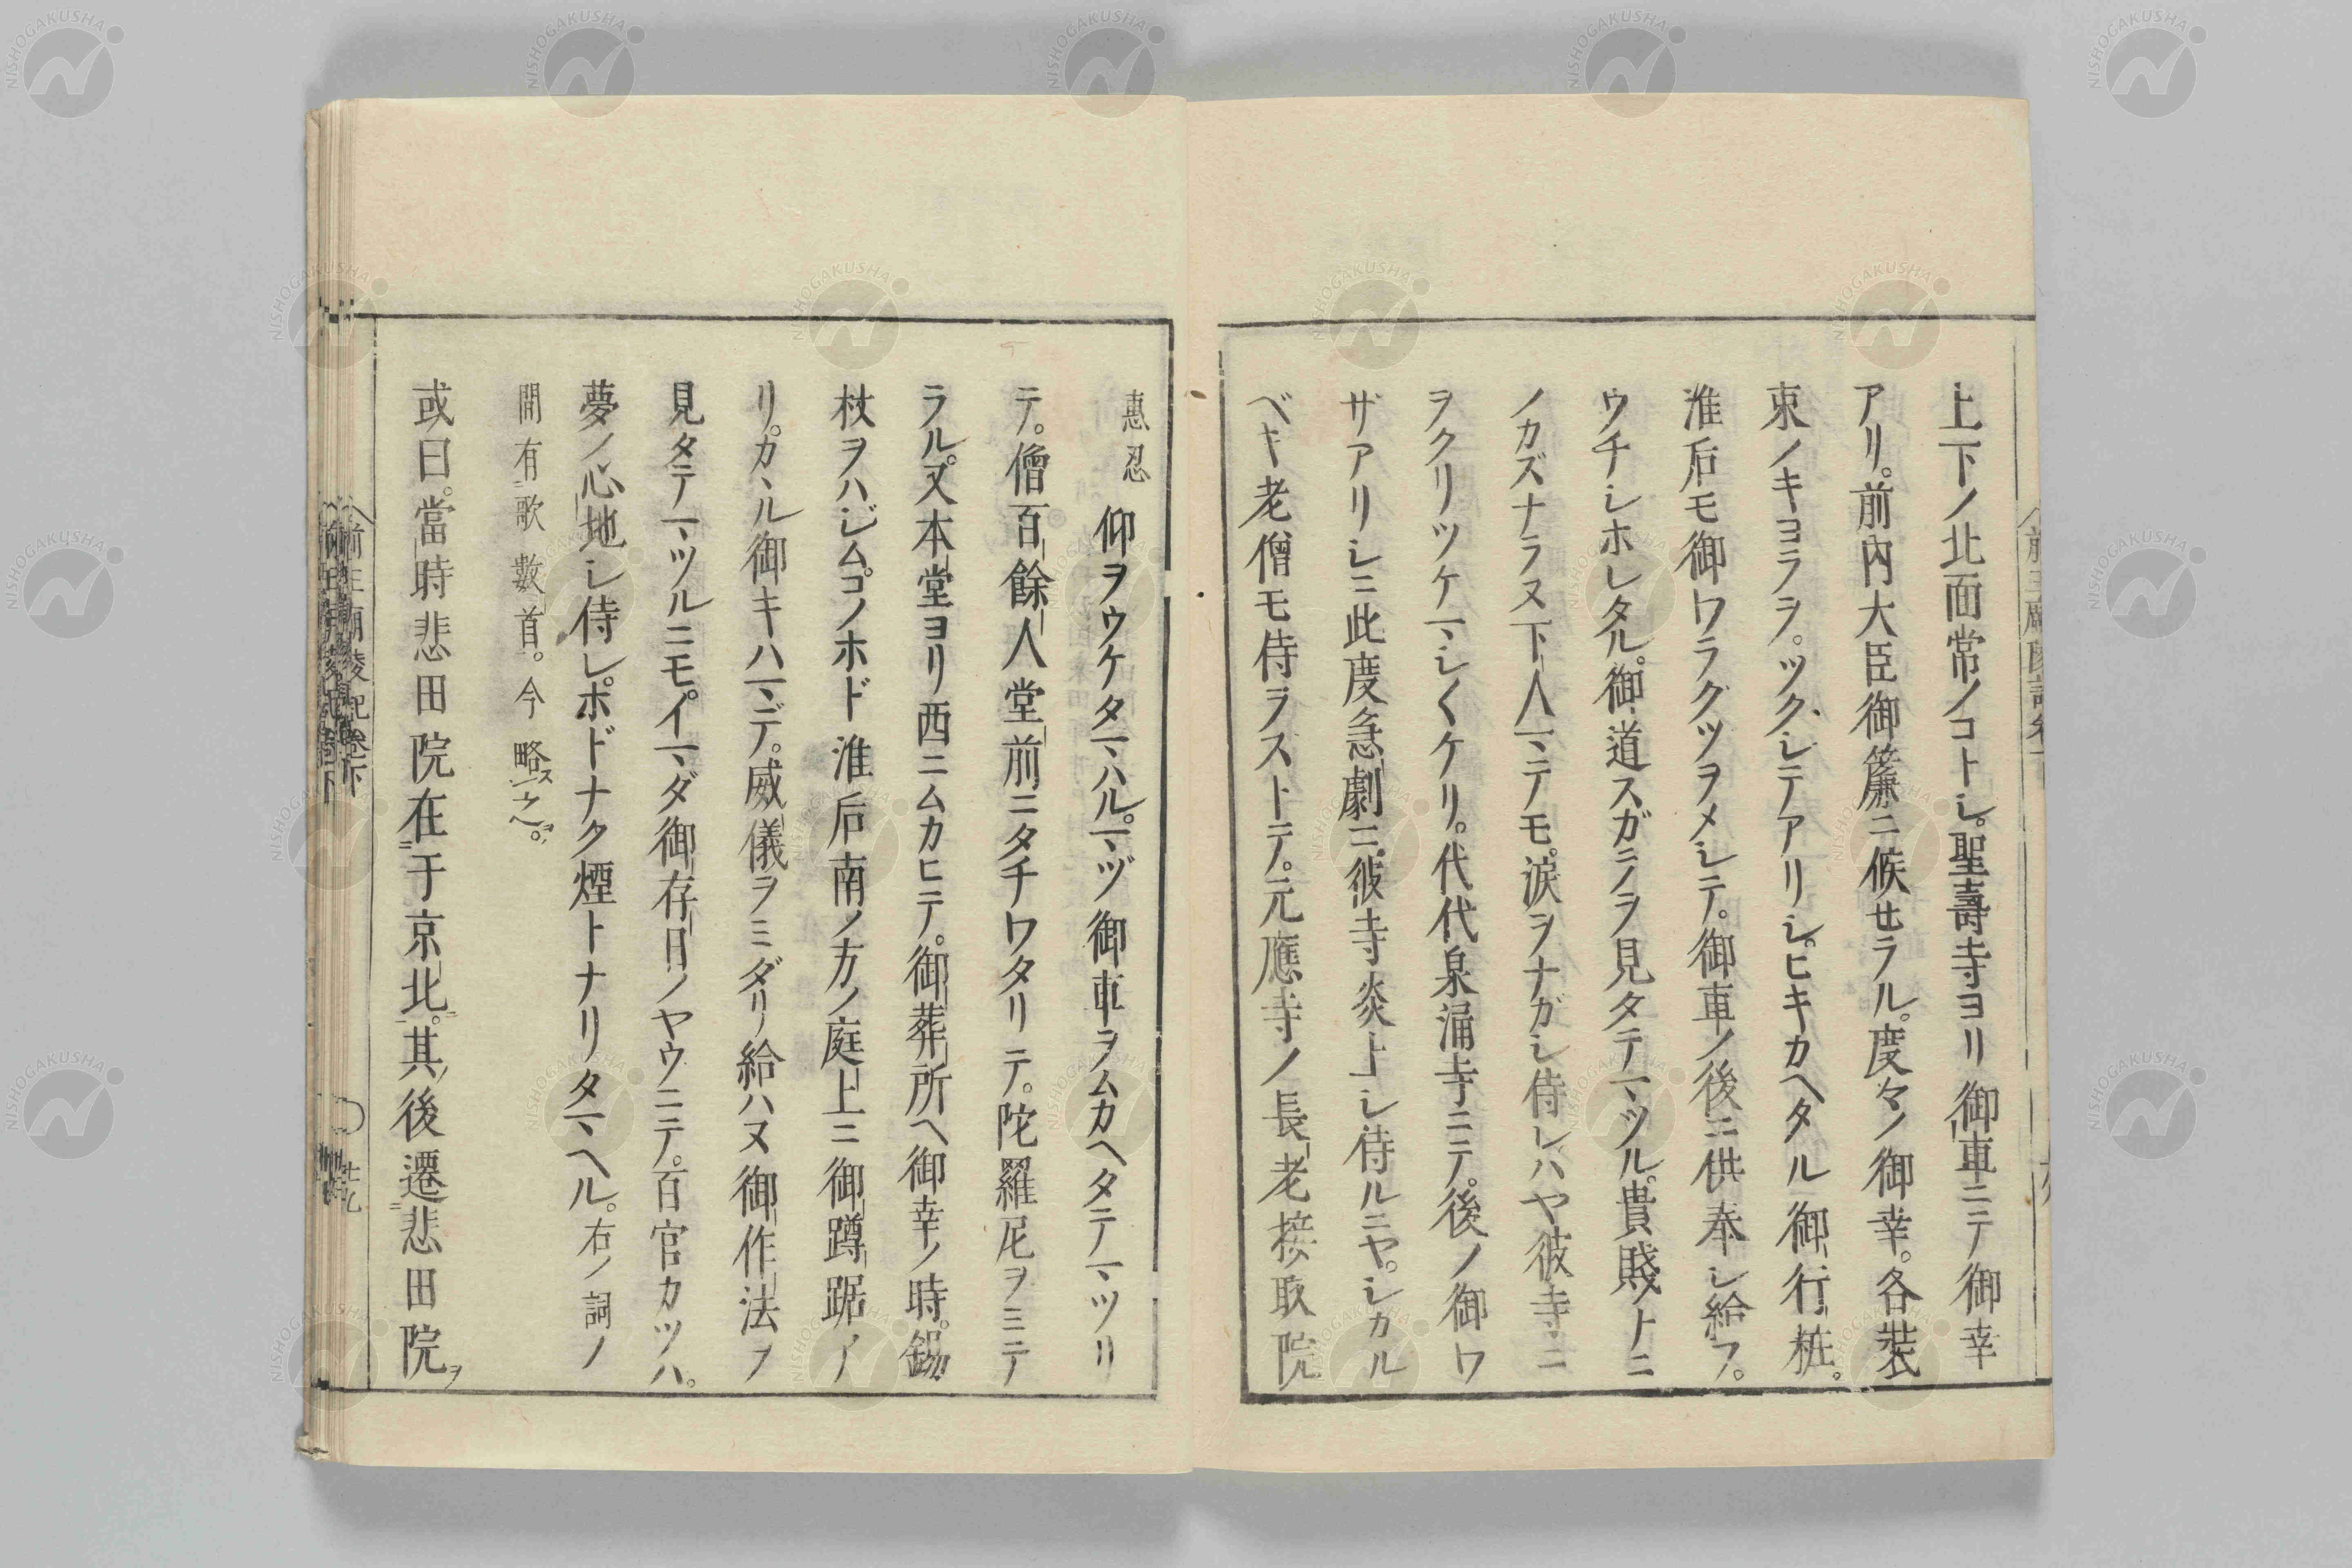 上下ノ北面常ノコトシ。聖壽寺ヨリ御車ニテ御幸
アリ。前內大臣御簾ニ候セラル。度々ノ御幸。各裝
束ノキヨラヲ。ツクシテアリシ。ヒキカヘタル御行粧。
准后モ御ワラクツヲメシテ。御車ノ後ニ供奉シ給フ。
ウチシホレタル。御道スガラヲ見タテマツル。貴賤トニ
ノカズナラヌ下人マテモ。涙ヲナガシ侍レハヤ彼寺ニ
ヲクリツケマシ〱ケリ。代代泉涌寺ニテ。後ノ御ワ
ザアリシニ此度急劇ニ彼寺炎上シ侍ルニヤ。シカル
ベキ老僧モ侍ラストテ。元應寺ノ長老接取院
惠忍仰ヲウケタマハル。マヅ御車ヲムカヘタテマツリ
テ。僧百餘人堂前ニタチワタリテ。陀羅尼ヲミテ
ラル。又本堂ヨリ西ニムカヒテ。御葬所ヘ御幸ノ時。錫
杖ヲハジム。コノホド准后南ノ方ノ庭上ニ御蹲踞ア
リ。カヽル御キハマデ。威儀ヲミダリ給ハヌ御作法ヲ
見タテマツルニモ。イマダ御存日ノヤウニテ。百官カツハ。
夢ノ心地シ侍レ。ホドナク煙トナリタマヘル。右ノ詞ノ
間有歌數首。今略ス之ヲ。
或曰。當時悲田院在于京北。其後遷悲田院ヲ
前王廟陵記卷下
NISHOGAKUSHA